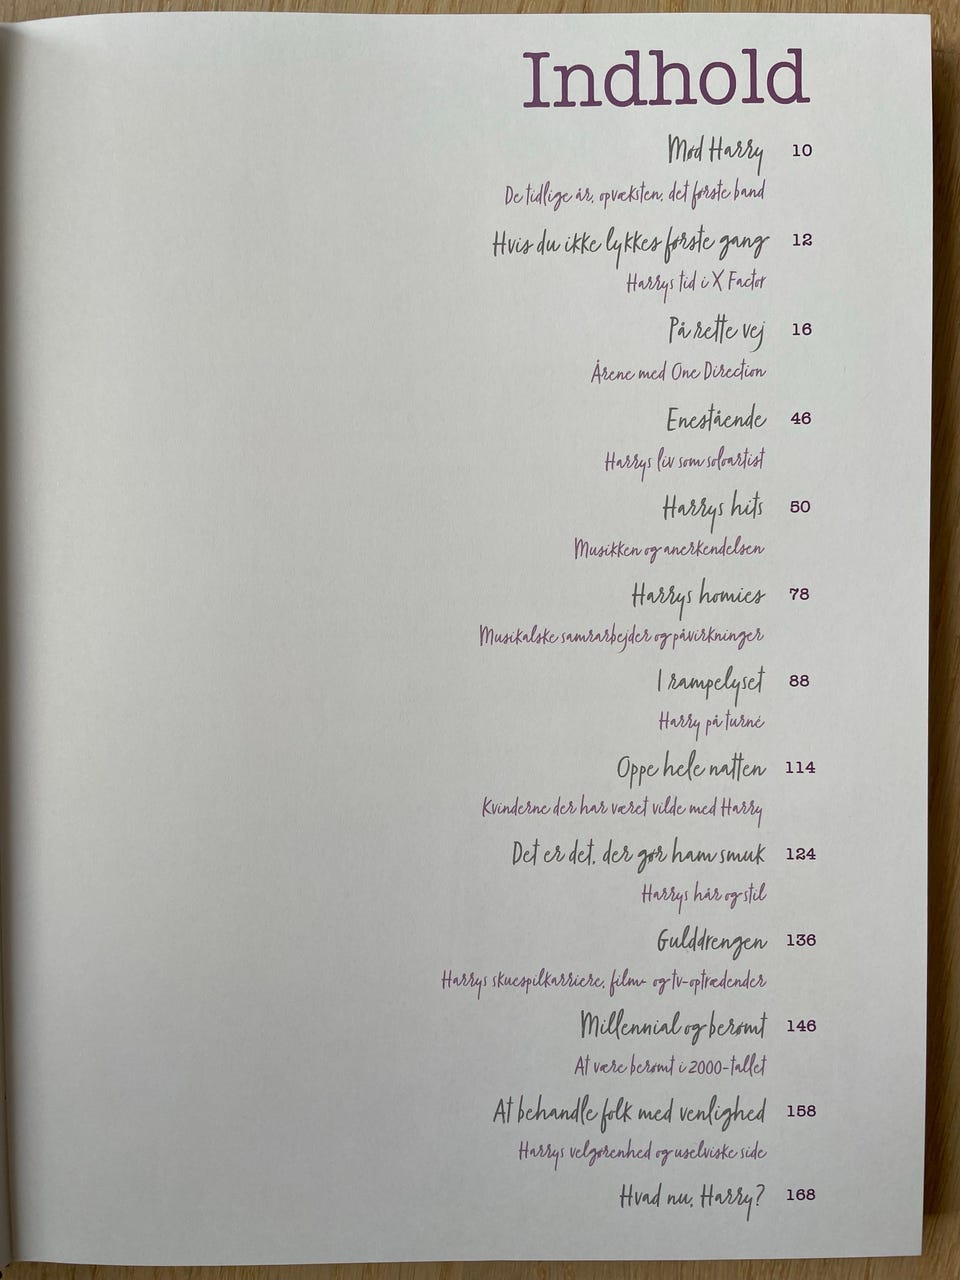 Indhold
Mød Harry 10
De tidlige år, opvæksten, det første band
Hvis du ikke lykkes første gang 12
Harrys tid i X Factor
På rette vej 16
Årene med One Direction
Enestående 46
Harrys liv som soloartist
Harrys hits 50
Musikken og anerkendelsen
Harrys homies 78
Musikalske samrarbejder og påvirkninger
I rampelyset 88
Harry på turné
Oppe hele natten 114
Kvinderne der har været vilde med Harry
Det er det, der gør ham smuk 124
Harrys hår og stil
Gulddrengen 136
Harrys skuespilkarriere, film- og tv-optrædender
Millennial og berømt 146
At være berømt i 2000-tallet
At behandle folk med venlighed 158
Harrys velgørenhed og uselviske side
Hvad nu, Harry? 168